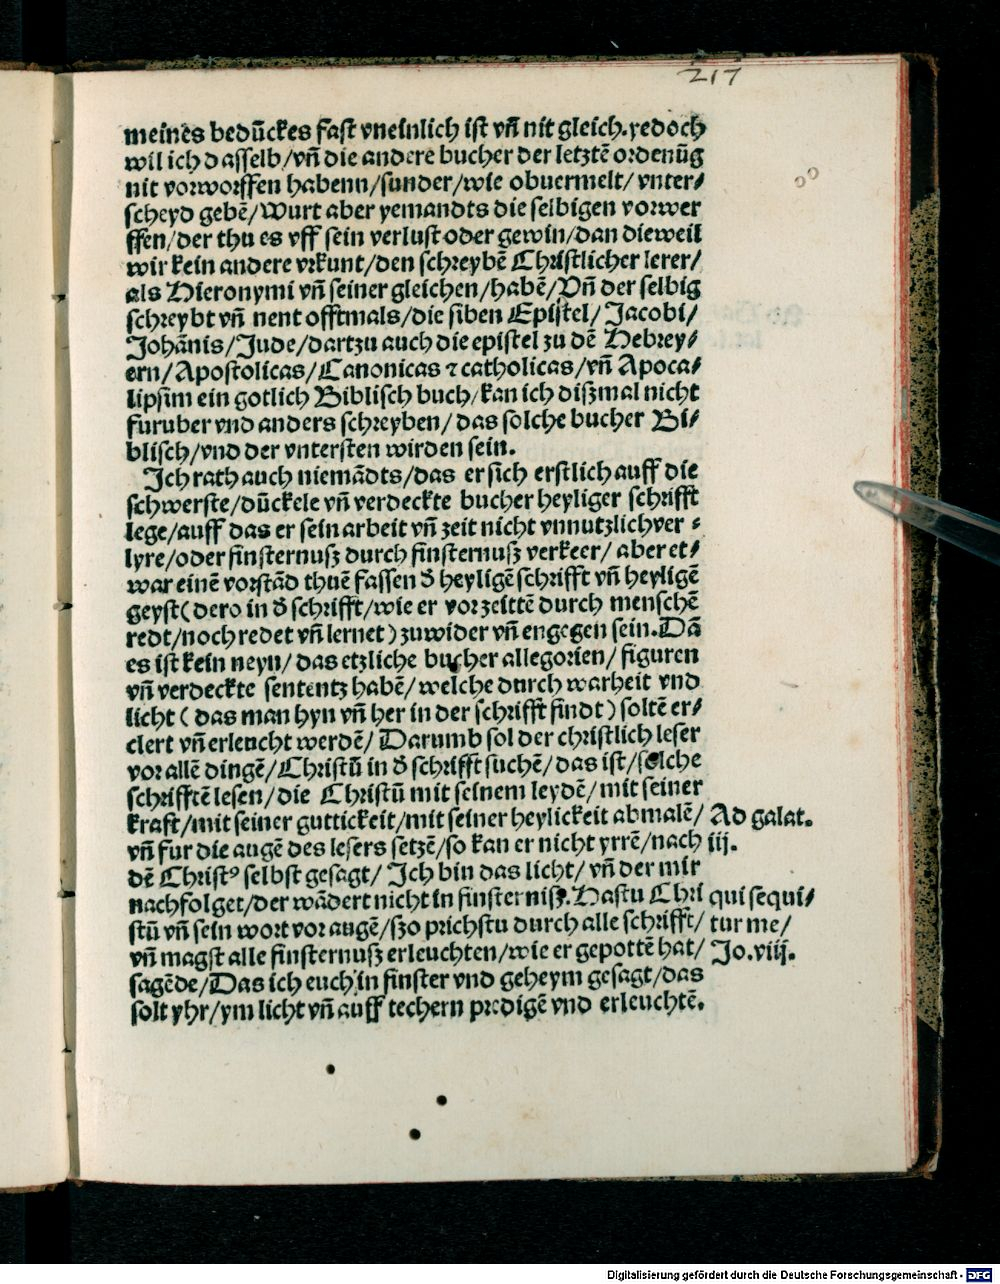 217
meines bedũckes fast vneinlich ist vñ nit gleich. yedoch
wil ich dasselb/vñ die andere bucher der letztẽ ordenũg
nit vorworffen habenn/sunder/wie obuermelt/ vnter⸗
scheyd gebẽ/Wurt aber yemandts die selbigen vorwer
ffen/der thu es vff sein verlust oder gewin/dan dieweil
wir kein andere vrkunt/den schreybẽ Christlicher lerer/
als Hieronymi vñ seiner gleichen/habẽ/Vñ der selbig
schreybt vñ nent offtmals/die siben Epistel/ Jacobi/
Johãnis/Jude/dartzu auch die epistel zu dẽ Hebrey⸗
ern/Apostolicas/Canonicas ⁊ catholicas/vñ Apoca⸗
lipsim ein gotlich Biblisch buch/kan ich dißmal nicht
furuber vnd anders schreyben/das solche bucher Bi⸗
blisch/vnd der vntersten wirden sein.
Ich rath auch niemãdts/das er sich erstlich auff die
schwerste/dũckele vñ verdeckte bucher heyliger schrifft
lege/auff das er sein arbeit vñ zeit nicht vnnutzlich ver⸗
lyre/oder finsternuß durch finsternuß verkeer/ aber et⸗
war einẽ vorstãd thuẽ fassen ð heyligẽ schrifft vñ heyligẽ
geyst(dero in ð schrifft/wie er vorzeittẽ durch menschẽ
redt/noch redet vñ lernet)zuwider vñ engegen sein.Dã
es ist kein neyn/das etzliche bucher allegorien/figuren
vñ verdeckte sententz habẽ/welche durch warheit vnd
licht(das man hyn vñ her in der schrifft findt)soltẽ er⸗
clert vñ erleucht werdẽ/Darumb sol der christlich leser
vor allẽ dingẽ/Christũ in ð schrifft suchẽ/das ist/solche
schrifftẽ lesen/die Christũ mit seinem leydẽ/mit seiner
kraft/mit seiner guttickeit/mit seiner heylickeit abmalẽ/ Ad galat.
vñ fur die augẽ des lesers setzẽ/so kan er nicht yrrẽ/nach iij.
dẽ Christꝰ selbst gesagt/ Ich bin das licht/vñ der mir
nachfolget/der wãdert nicht in finsterniß.Hastu Chri qui sequi⸗
stũ vñ sein wort vor augẽ/ßo prichstu durch alle schrifft/ tur me/
vñ magst alle finsternuß erleuchten/wie er gepottẽ hat/ Jo.viij.
sagẽde/Das ich euch in finster vnd geheym gesagt/das
solt yhr/ym licht vñ auff techern predigẽ vnd erleuchtẽ.
Digitalisierung gefördert durch die Deutsche Forschungsgemeinschaft - DFG